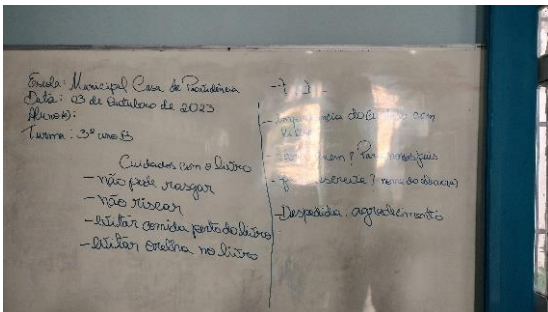 Escola: Municipal Casa da Providência
Data: 03 de Outubro de 2023
Aluno(a):
Turma: 3º ano B
Cuidados com o livro
- não pode rasgar
- não riscar
- evitar comida perto do livro
- evitar orelha no livro
- Importância do com
quem? Para
escreve? nome do
- Despedida. agradecimento